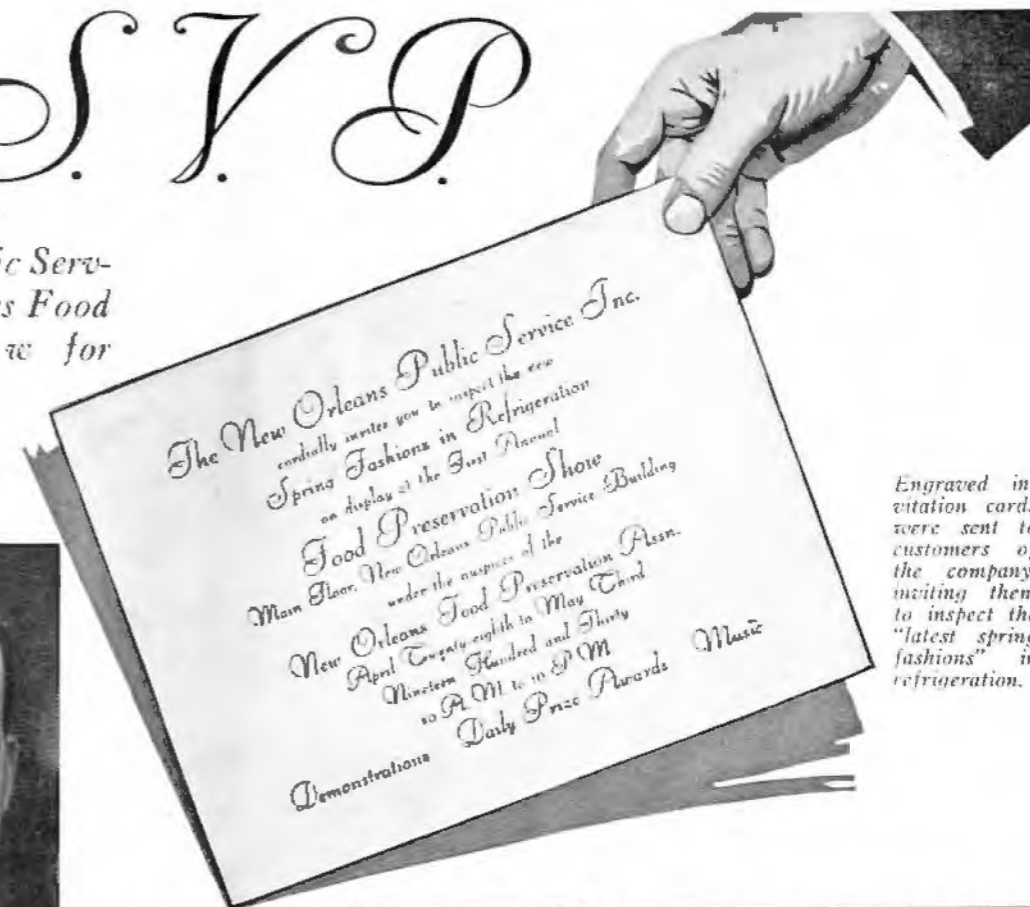 S. V. P.
ic Serv-
s Food
w for
The New Orleans Public Service Inc.
cordially invites you to inspect the new
Spring Fashions in Refrigeration
on display at the First Annual
Food Preservation Show
Main Floor, New Orleans Public Service Building
under the auspices of the
New Orleans Food Preservation Assn.
April Twenty-eighth to May Third
Nineteen Hundred and Thirty
10 A. M. to 10 P M
Demonstrations Daily Prize Awards Music
Engraved in-
vitation cards
were sent to
customers of
the company,
inviting them
to inspect the
"latest spring
fashions" in
refrigeration.